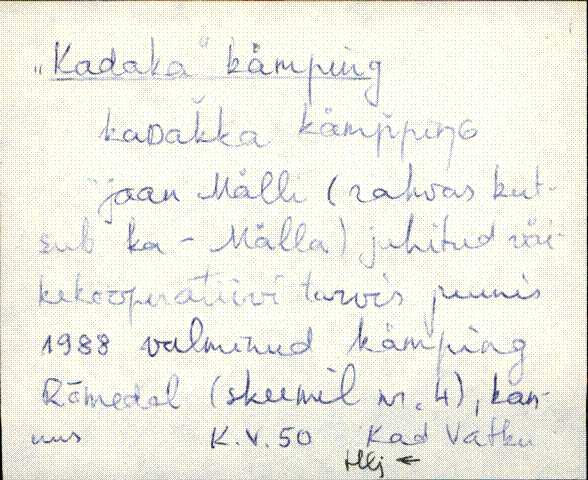 „Kadaka" kämping
kaDakka kämpping
Jaan Mälli (rahvas kut-
sub ka - Mälla) juhitud väi-
kekooperatiivi tarvis juunis
1988 valminud kämping
Rämedal (skeemil nr. 4), kan-
nus K.V. 50 Kad Vatku
Hlj ←